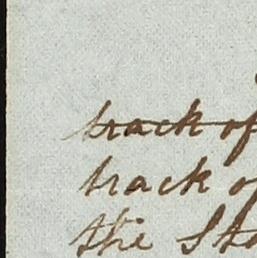 track of
track of
the Sta